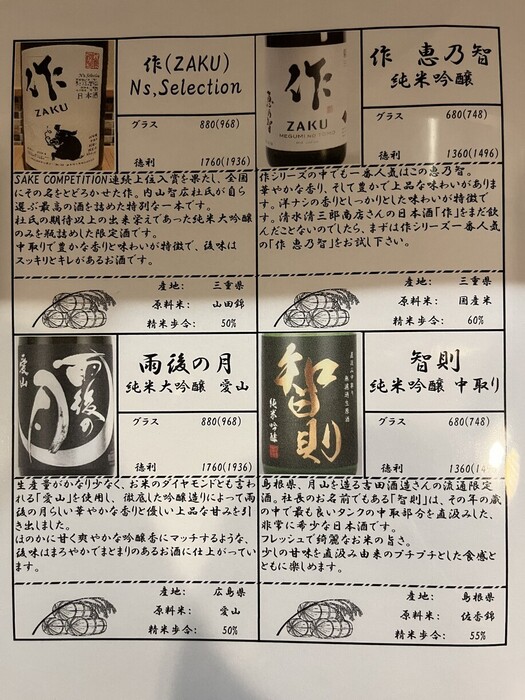 作
Ns,Selection
日本酒
ZAKU
作(ZAKU)
Ns,Selection
グラス 880(968)
徳利 1760(1936)
SAKE COMPETITION連続上位入賞を果たし、全国
にその名をとどろかせた作。内山智広杜氏が自ら
選ぶ最高の酒を詰めた特別な一本です。
杜氏の期待以上の出来栄えであった純米大吟醸
のみを瓶詰めした限定酒です。
中取りで豊かな香りと味わいが特徴で、後味は
スッキリとキレがあるお酒です。
産地: 三重県
原料米: 山田錦
精米歩合: 50%
作
ZAKU
MEGUMI NO TOMO
恵乃智
作 恵乃智
純米吟醸
グラス 680(748)
徳利 1360(1496)
作シリーズの中でも一番人気はこの恵乃智。
華やかな香り、そして豊かで上品な味わいがありま
す。洋ナシの香りとしっかりとした味わいが特徴で
す。清水清三郎商店さんの日本酒「作」をまだ飲
んだことないのでしたら、まずは作シリーズ一番人気
の「作 恵乃智」をお試し下さい。
産地: 三重県
原料米: 国産米
精米歩合: 60%
愛山
雨後の月
雨後の月
純米大吟醸 愛山
グラス 880(968)
徳利 1760(1936)
生産量がかなり少なく、お米のダイヤモンドとも言わ
れる「愛山」を使用し、徹底した吟醸造りによって雨
後の月らしい華やかな香りと優しい上品な甘みを引
き出しました。
ほのかに甘く爽やかな吟醸香にマッチするような、
後味はまろやかでまとまりのあるお酒に仕上がってい
ます。
産地: 広島県
原料米: 愛山
精米歩合: 50%
智則
純米吟醸
直汲み中取り
無濾過生原酒
智則
純米吟醸 中取り
グラス 680(748)
徳利 1360(14
島根県、月山を造る吉田酒造さんの流通限定
酒。社長のお名前でもある「智則」は、その年の蔵
の中で最も良いタンクの中取部分を直汲みした、
非常に希少な日本酒です。
フレッシュで綺麗なお米の旨さ。
少しの甘味を直汲み由来のプチプチとした食感と
ともに楽しめます。
産地: 島根県
原料米: 佐香錦
精米歩合: 55%